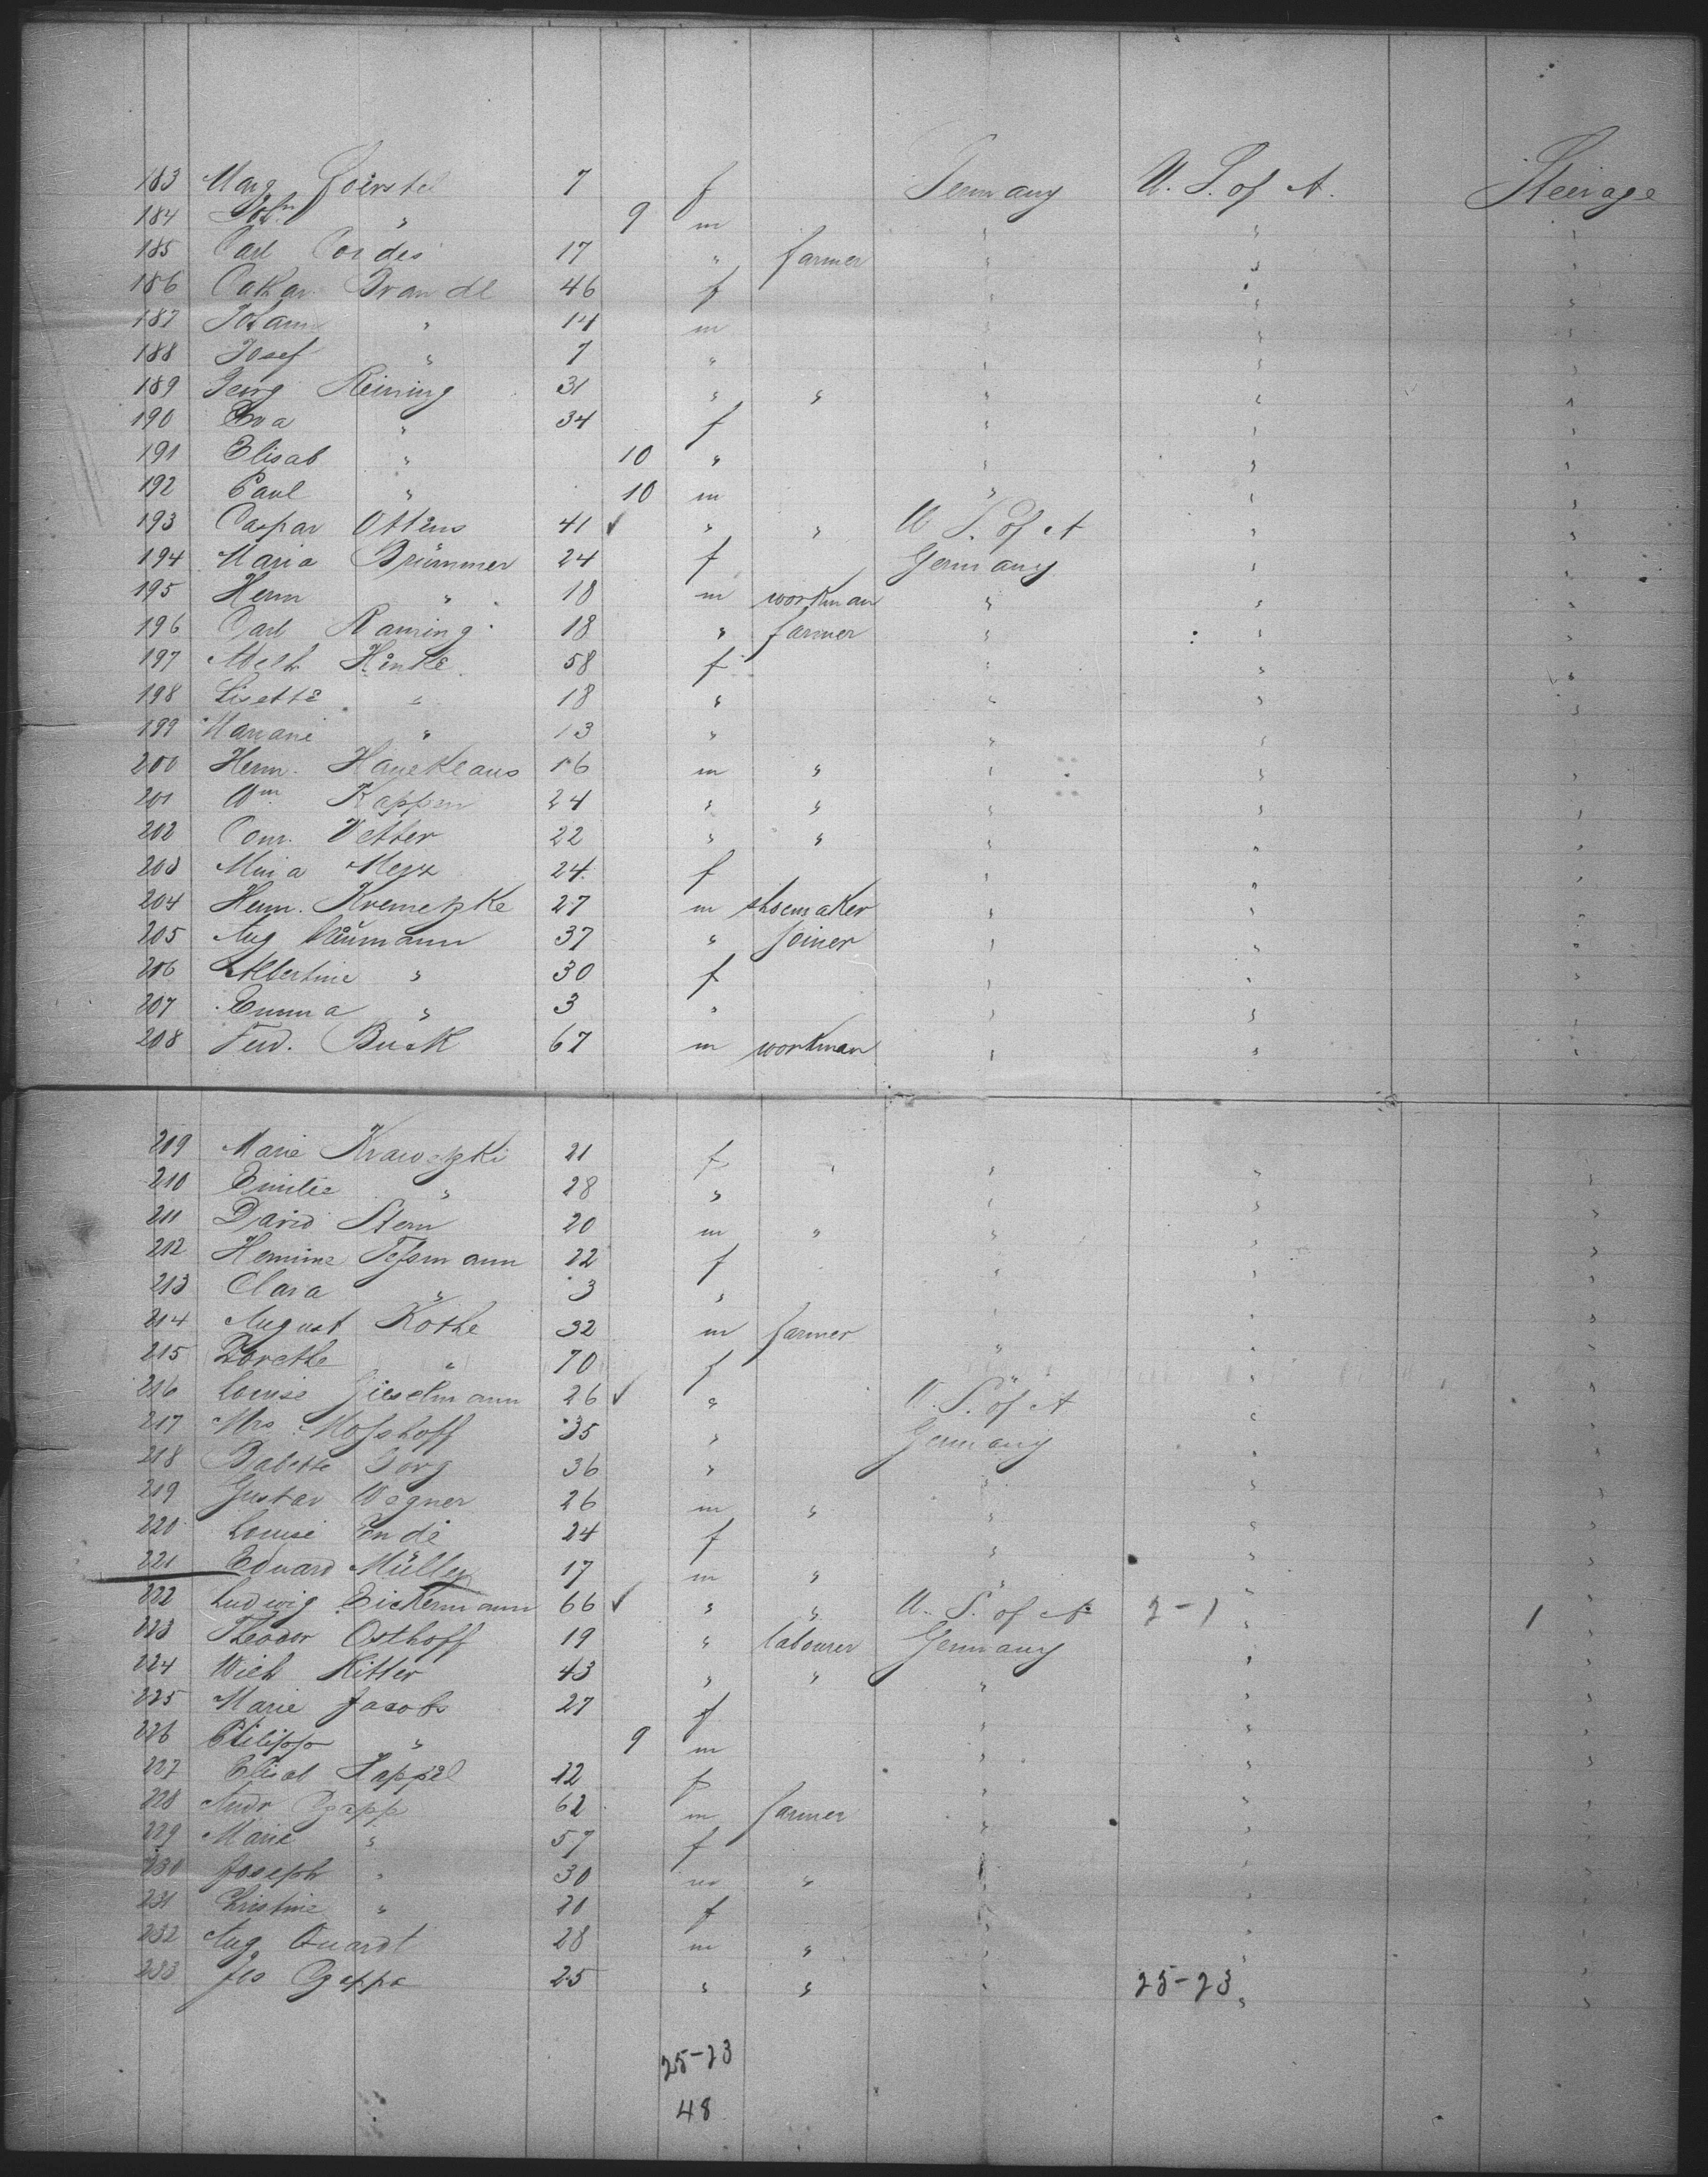 183 Marg Foerstel 7 f Germany U. S. of A. Steerage
184 Joh " 9 m " " "
185 Carl Cordes 17 " farmer " " "
186 Cathar. Brandl 46 f " " "
187 Johann " 14 m " " "
188 Josef " 7 " " " "
189 Georg Reining 31 " " " " "
190 Eva " 34 f " " "
191 Elisab " 10 " " " "
192 Paul " 10 m " " "
193 Caspar Ottens 41 ✓ " " U. S. of A " "
194 Maria Brümmer 24 f Germany " "
195 Herm " 18 m workman " " "
196 Carl Raming 18 " farmer " " "
197 Meth Hinke 58 f " " "
198 Lisette " 18 " " " "
199 Mariane " 13 " " " "
200 Herm. 16 m " " " "
201 Wm Kappen 24 " " " " "
202 Conr. Vetter 22 " " " " "
203 Mina 24 f " " "
204 Herm. Kremetzke 27 m shoemaker " " "
205 Aug Naumann 37 " joiner " " "
206 Albertine " 30 f " " "
207 Emma " 3 " " " "
208 Ferd. Busk 67 m workman " " "
209 Marie Krawetzki 21 f " " " "
210 Emilie " 28 " " " "
211 David Stern 20 m " " " "
212 Hermine Teßmann 22 f " " "
213 Clara " 3 " " " "
214 August Kothe 32 m farmer " " "
215 Dorethe " 70 f " " "
216 Louise Gieselmann 26 ✓ " U. S. of A " "
217 Mrs Moßhoff 35 " Germany " "
218 Babette 36 " " " "
219 Gustav Wegner 26 m " " " "
220 Louise Ende 24 f " " "
221 Eduard Müller 17 m " " " "
222 Ludwig Dickermann 66 ✓ " " U. S. of A 2-1 " 1 "
223 Theodor Osthoff 19 " labourer Germany " "
224 Wilh Ritter 43 " " " " "
225 Marie Jacobs 27 f " " "
226 Philipp " 9 m " " "
227 Elisab Happel 22 f " " "
228 Andr Czapp 62 m farmer " " "
229 Marie " 57 f " " "
230 Joseph " 30 m " " " "
231 Christine " 20 f " " "
232 Aug Quardt 28 m " " " "
233 Jos Czappa 25 " " " 25-23 " "
25-23
48